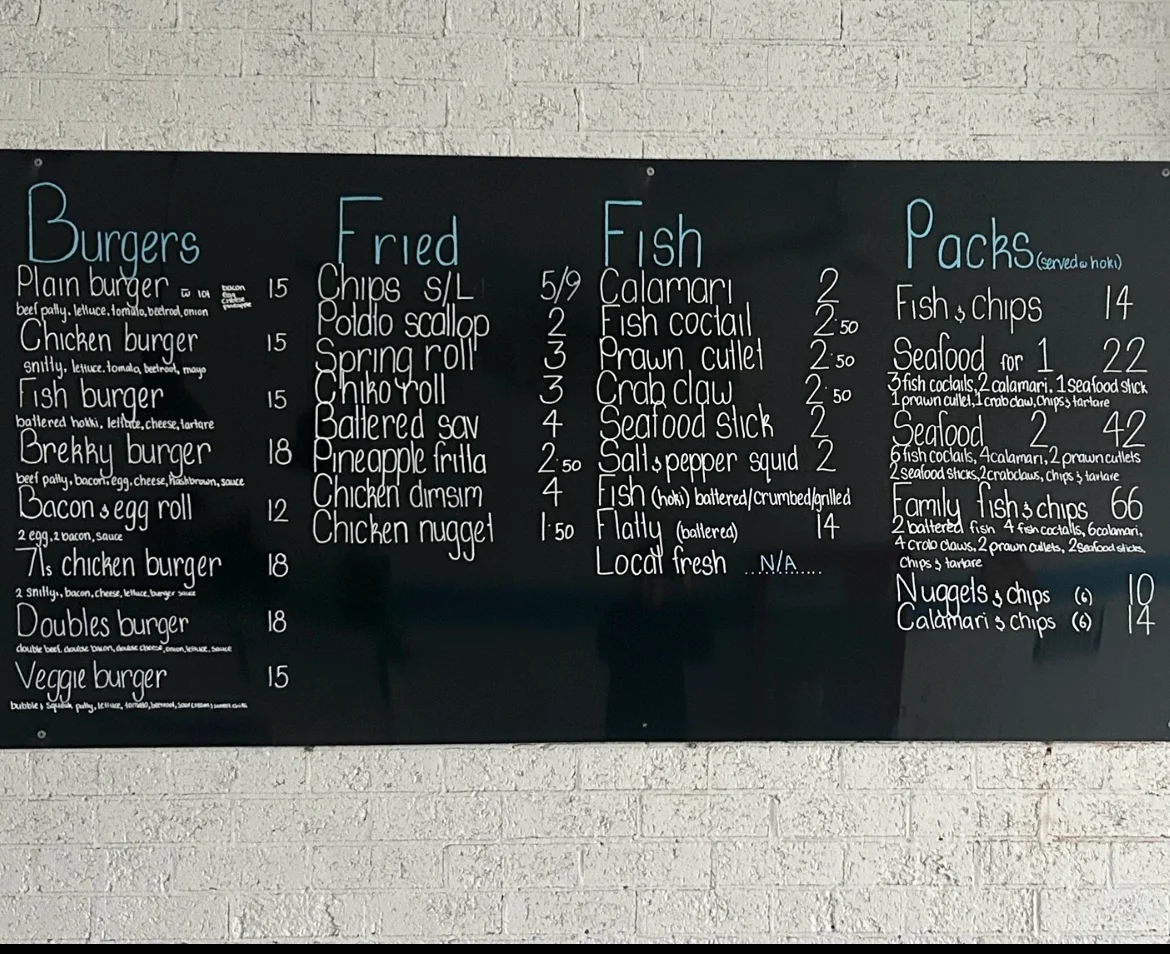 Burgers
Plain burger w lot bacon egg cheese pineapple 15
beef patty, lettuce, tomato, beetrod, onion
Chicken burger 15
snitty, lettuce, tomato, beetroot, mayo
Fish burger 15
battered hokki, lettuce, cheese, tartare
Brekky burger 18
beef patty, bacon, egg, cheese, hashbrown, sauce
Bacon & egg roll 12
2 egg, 2 bacon, sauce
71s chicken burger 18
2 snittys, bacon, cheese, lettuce, burger sauce
Doubles burger 18
double beef, double bacon, double cheese, onion, lettuce, sauce
Veggie burger 15
bubble & squeak patty, lettuce, tomato, beetroot,
Fried
Chips s/L 5/9
Potato scallop 2
Spring roll 3
Chiko roll 3
Battered sav 4
Pineapple fritta 2.50
Chicken dimsim 4
Chicken nugget 1.50
Fish
Calamari 2
Fish coctail 2.50
Prawn cutlet 2.50
Crab claw 2.50
Seafood stick 2
Salt & pepper squid 2
Fish (hoki) battered/crumbed/grilled
Flatty (battered) 14
Local fresh ...N/A......
Packs (served w hoki)
Fish & chips 14
Seafood for 1 22
3 fish coctails, 2 calamari, 1 seafood stick
1 prawn cutlet, 1 crab claw, chips & tartare
Seafood 2 42
6 fish coctails, 4 calamari, 2 prawn cutlets
2 seafood sticks, 2 crabclaws, chips & tartare
Family fish & chips 66
2 battered fish 4 fish coctalls, 6 calamari,
4 crab claws, 2 prawn cutlets, 2 seafood sticks,
chips & tartare
Nuggets & chips (6) 10
Calamari & chips (6) 14